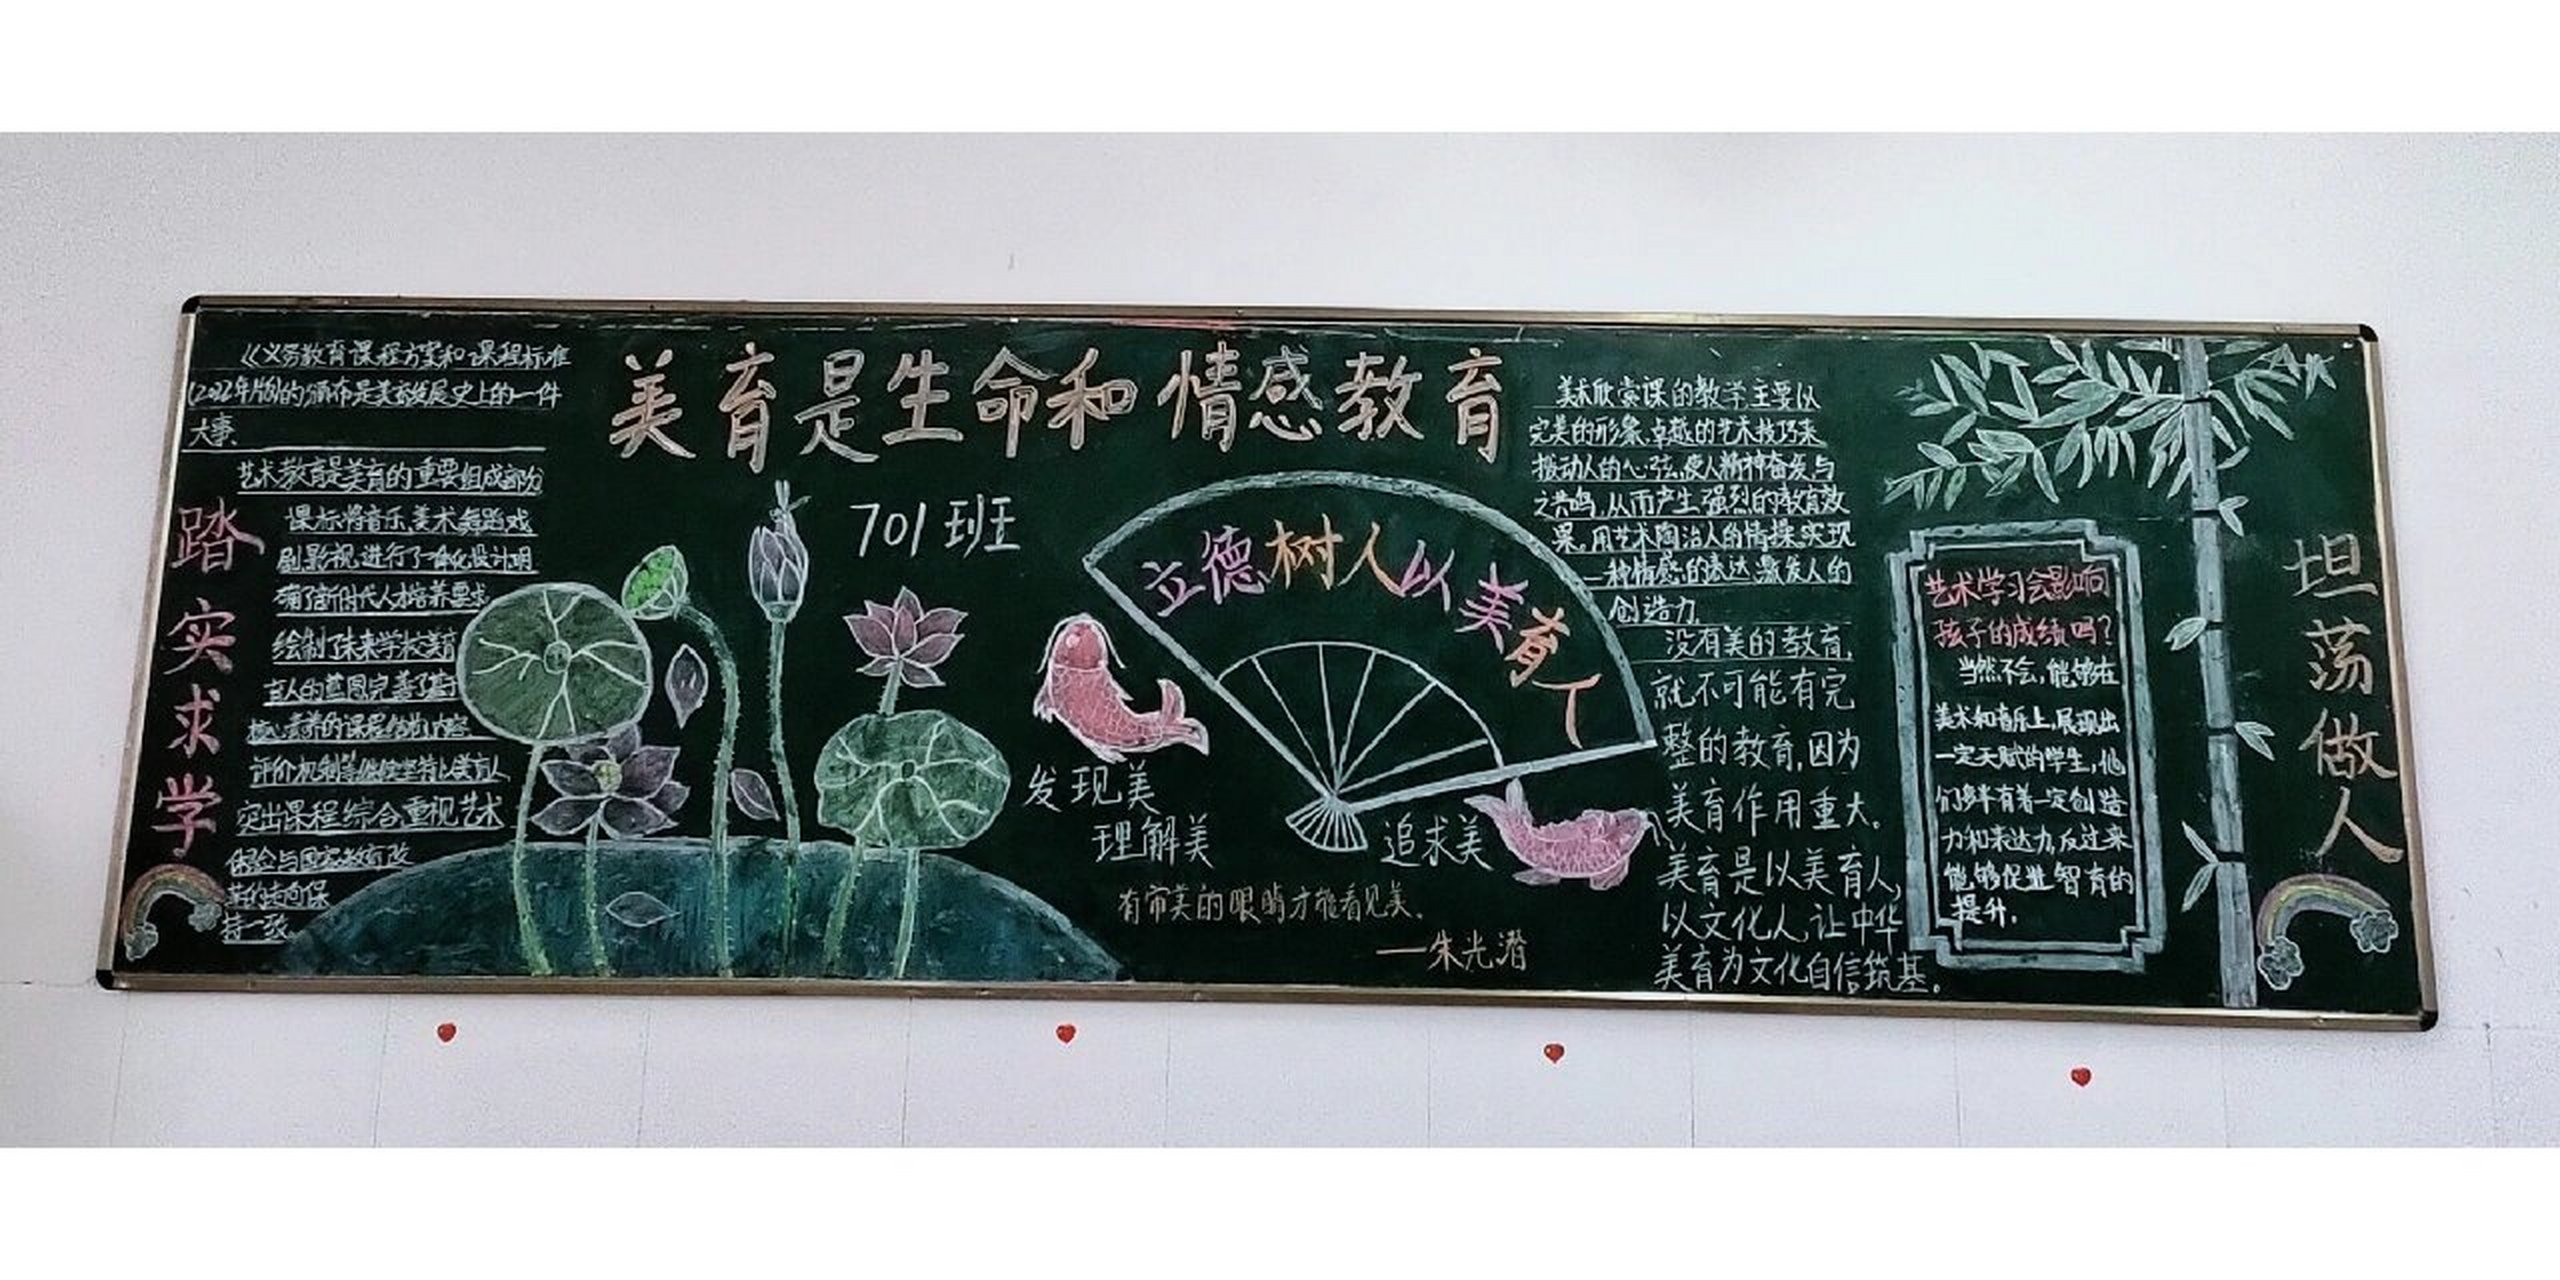 美育是生命和情感教育
701班
《义务教育课程方案和课程标准
(2022年版)的颁布是美育发展史上的一件
大事、
艺术教育是美育的重要组成部分
课标将音乐、美术、舞蹈、戏
剧、影视进行了一体化设计、明
确了新时代人才培养要求
绘制了未来学校美育
育人的蓝图完善了基于
核心素养的课程结构内容
评价机制等
突出课程综合重视艺术
体验与国家教育改
革的方向保
持一致
踏实求学
立德树人以美育人
发现美
理解美
追求美
有审美的眼睛才能看见美。
——朱光潜
美术欣赏课的教学主要以
完美的形象、卓越的艺术技巧来
拨动人的心弦、使人精神奋发、与
之共鸣,从而产生强烈的教育效
果。用艺术陶冶人的情操、实现
一种情感的表达、激发人的
创造力。
没有美的教育,
就不可能有完
整的教育,因为
美育作用重大。
美育是以美育人,
以文化人,让中华
美育为文化自信筑基。
艺术学习会影响
孩子的成绩吗?
当然不会,能够在
美术和音乐上,展现出
一定天赋的学生,他
们多半有着一定创造
力和表达力,反过来
能够促进智育的
提升.
坦荡做人